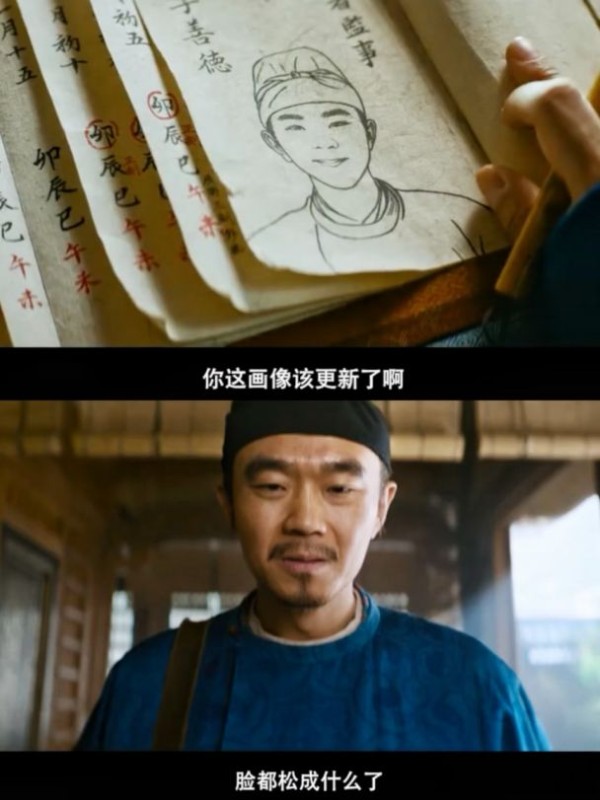 月十五
月初十
初五
子善德
署监事
卯辰巳午未
卯辰巳午未
卯辰巳午
辰巳午未
你这画像该更新了啊
脸都松成什么了